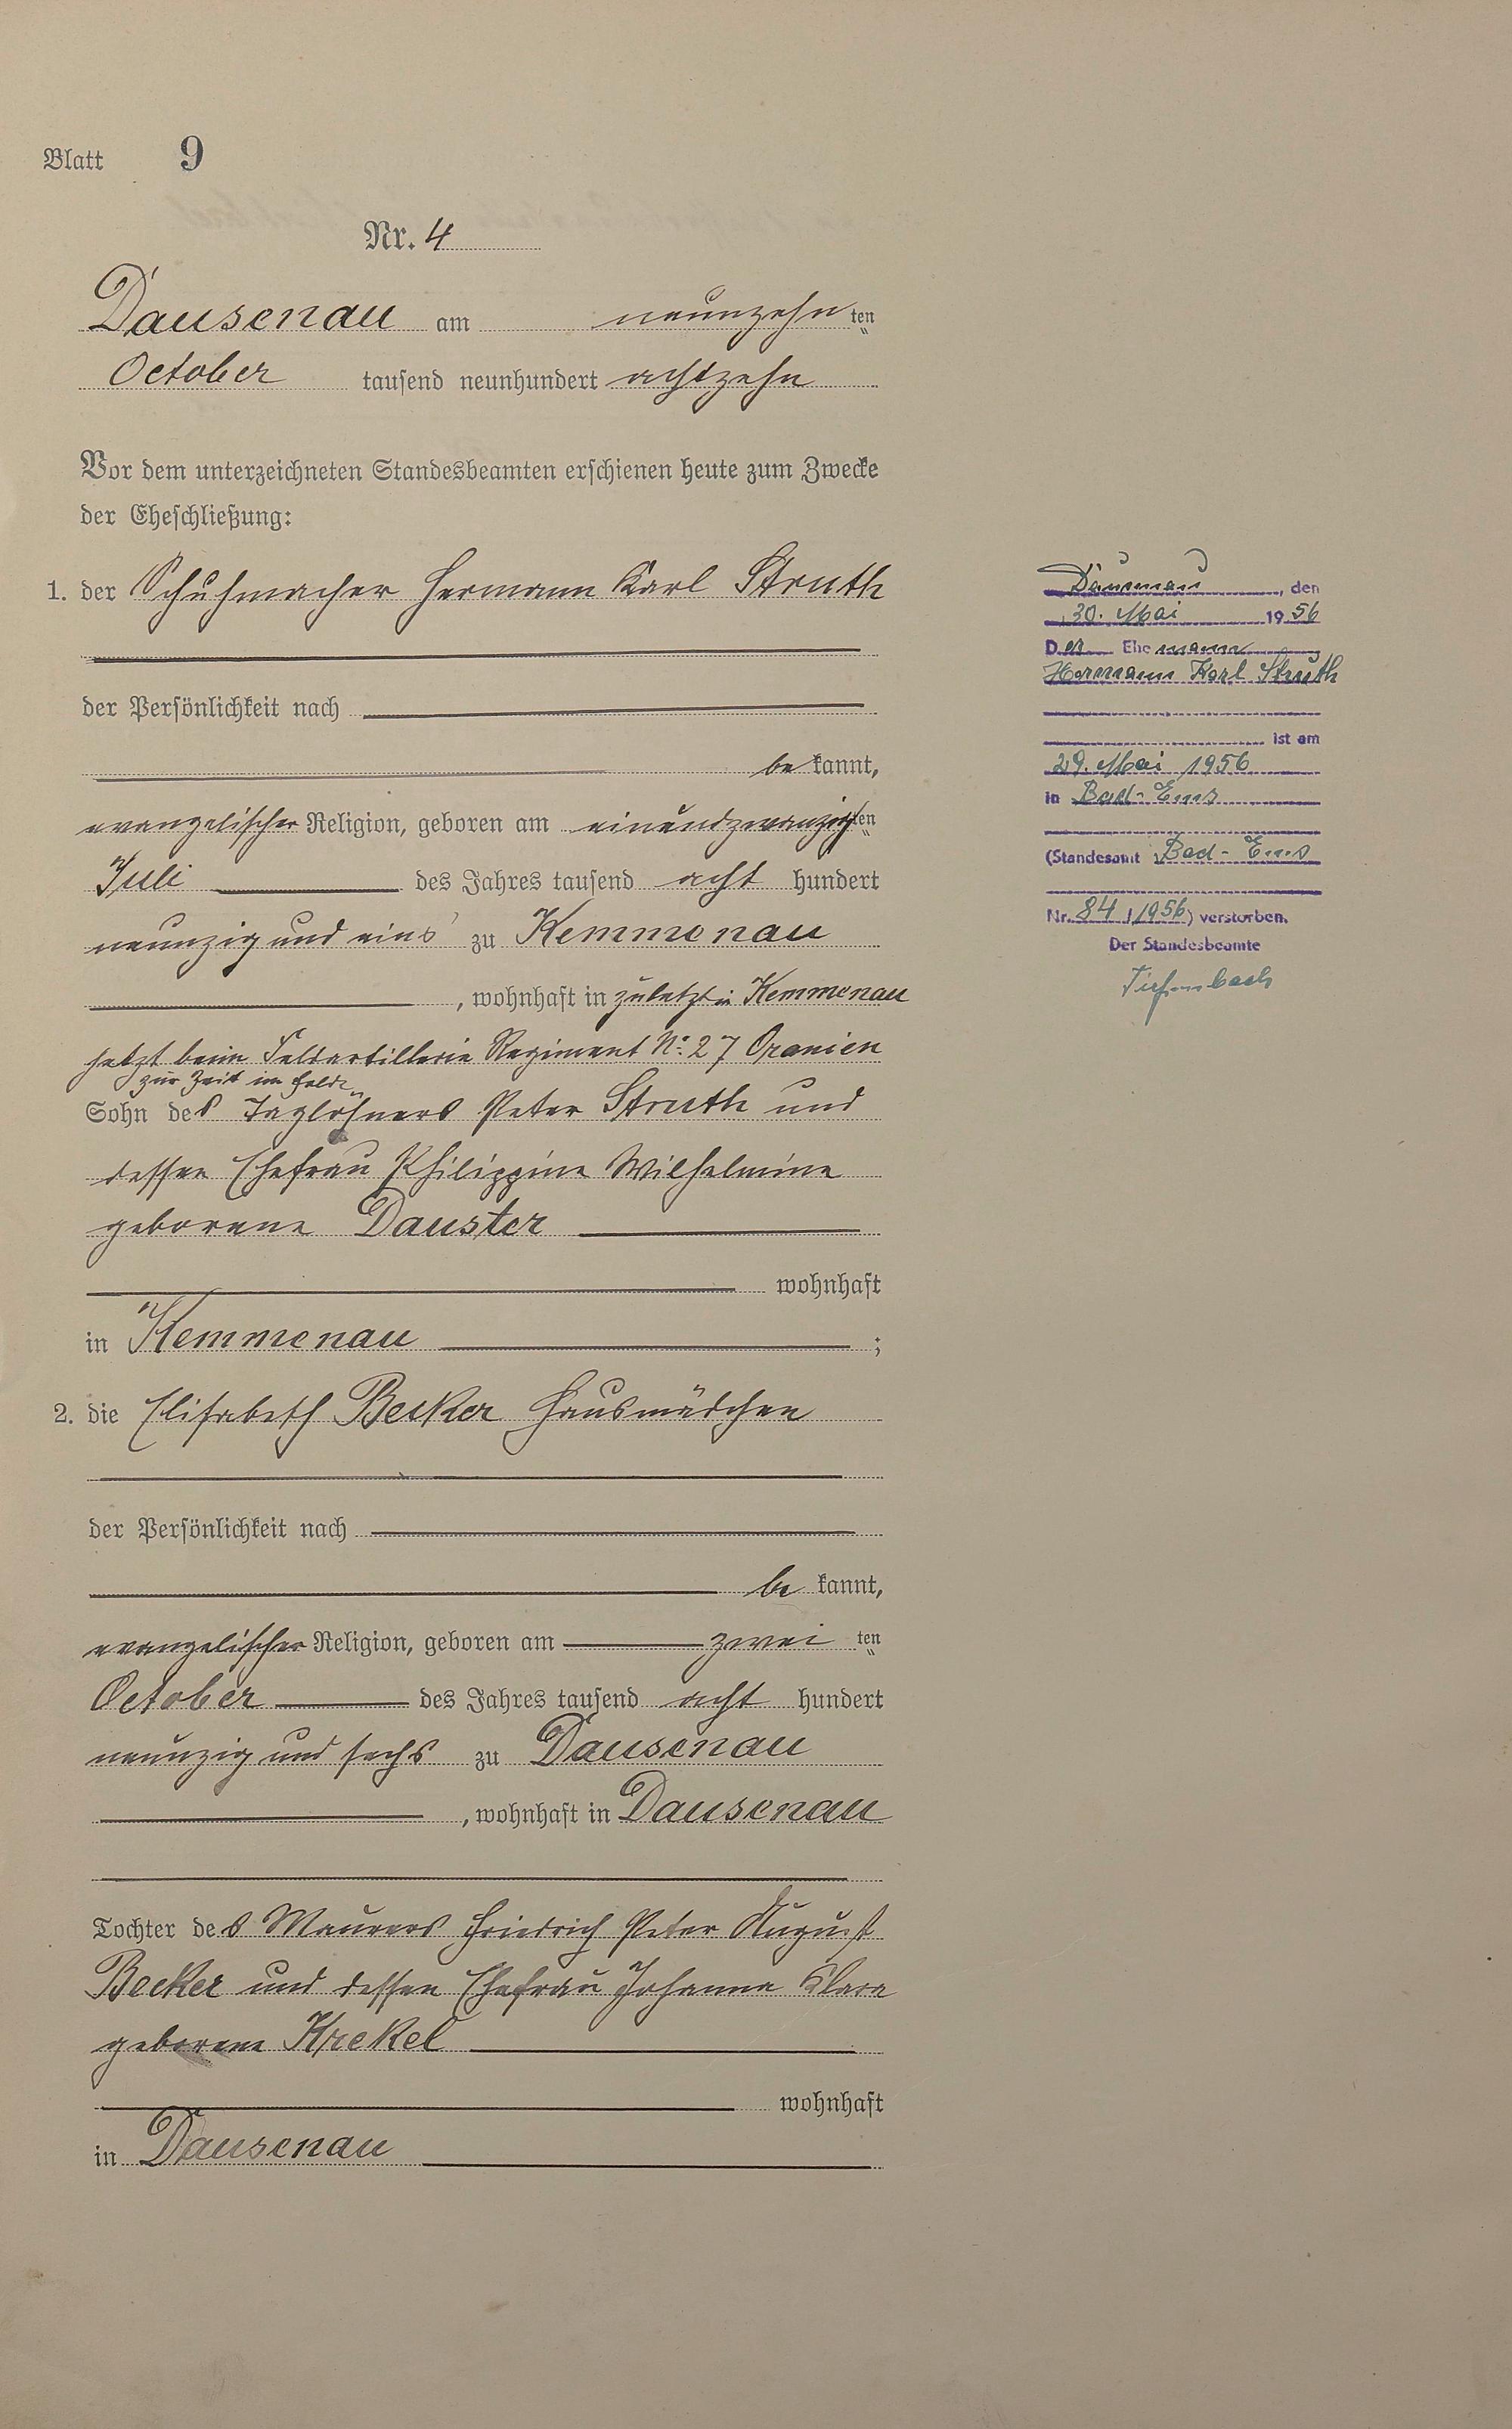 Blatt 9
Nr. 4
Dausenau am neunzehnten
October tausend neunhundert achtzehn
Vor dem unterzeichneten Standesbeamten erschienen heute zum Zwecke
der Eheschließung:
1. der Schuhmacher Hermann Karl Struth
der Persönlichkeit nach
bekannt,
evangelischer Religion, geboren am einundzwanzigsten
Juli des Jahres tausend acht hundert
neunzig und eins zu Kemmenau
, wohnhaft in zuletzt in Kemmenau
jetzt beim Feldartillerie Regiment No. 27 Oranien
zur Zeit im Felde
Sohn des Taglöhners Peter Struth und
dessen Ehefrau Philippine Wilhelmine
geborene Dauster
wohnhaft
in Kemmenau ;
2. die Elisabeth Becker Hausmädchen
der Persönlichkeit nach
bekannt,
evangelischer Religion, geboren am zweiten
October des Jahres tausend acht hundert
neunzig und sechs zu Dausenau
, wohnhaft in Dausenau
Tochter des Maurers Friedrich Peter August
Becker und dessen Ehefrau Johanna Klara
geborene Krekel
wohnhaft
in Dausenau
Dausenau, den
30. Mai 1956
Der Ehemann
Hermann Karl Struth
ist am
29. Mai 1956
in Bad-Ems
(Standesamt Bad-Ems
Nr. 84/1956) verstorben.
Der Standesbeamte
Tiefenbach